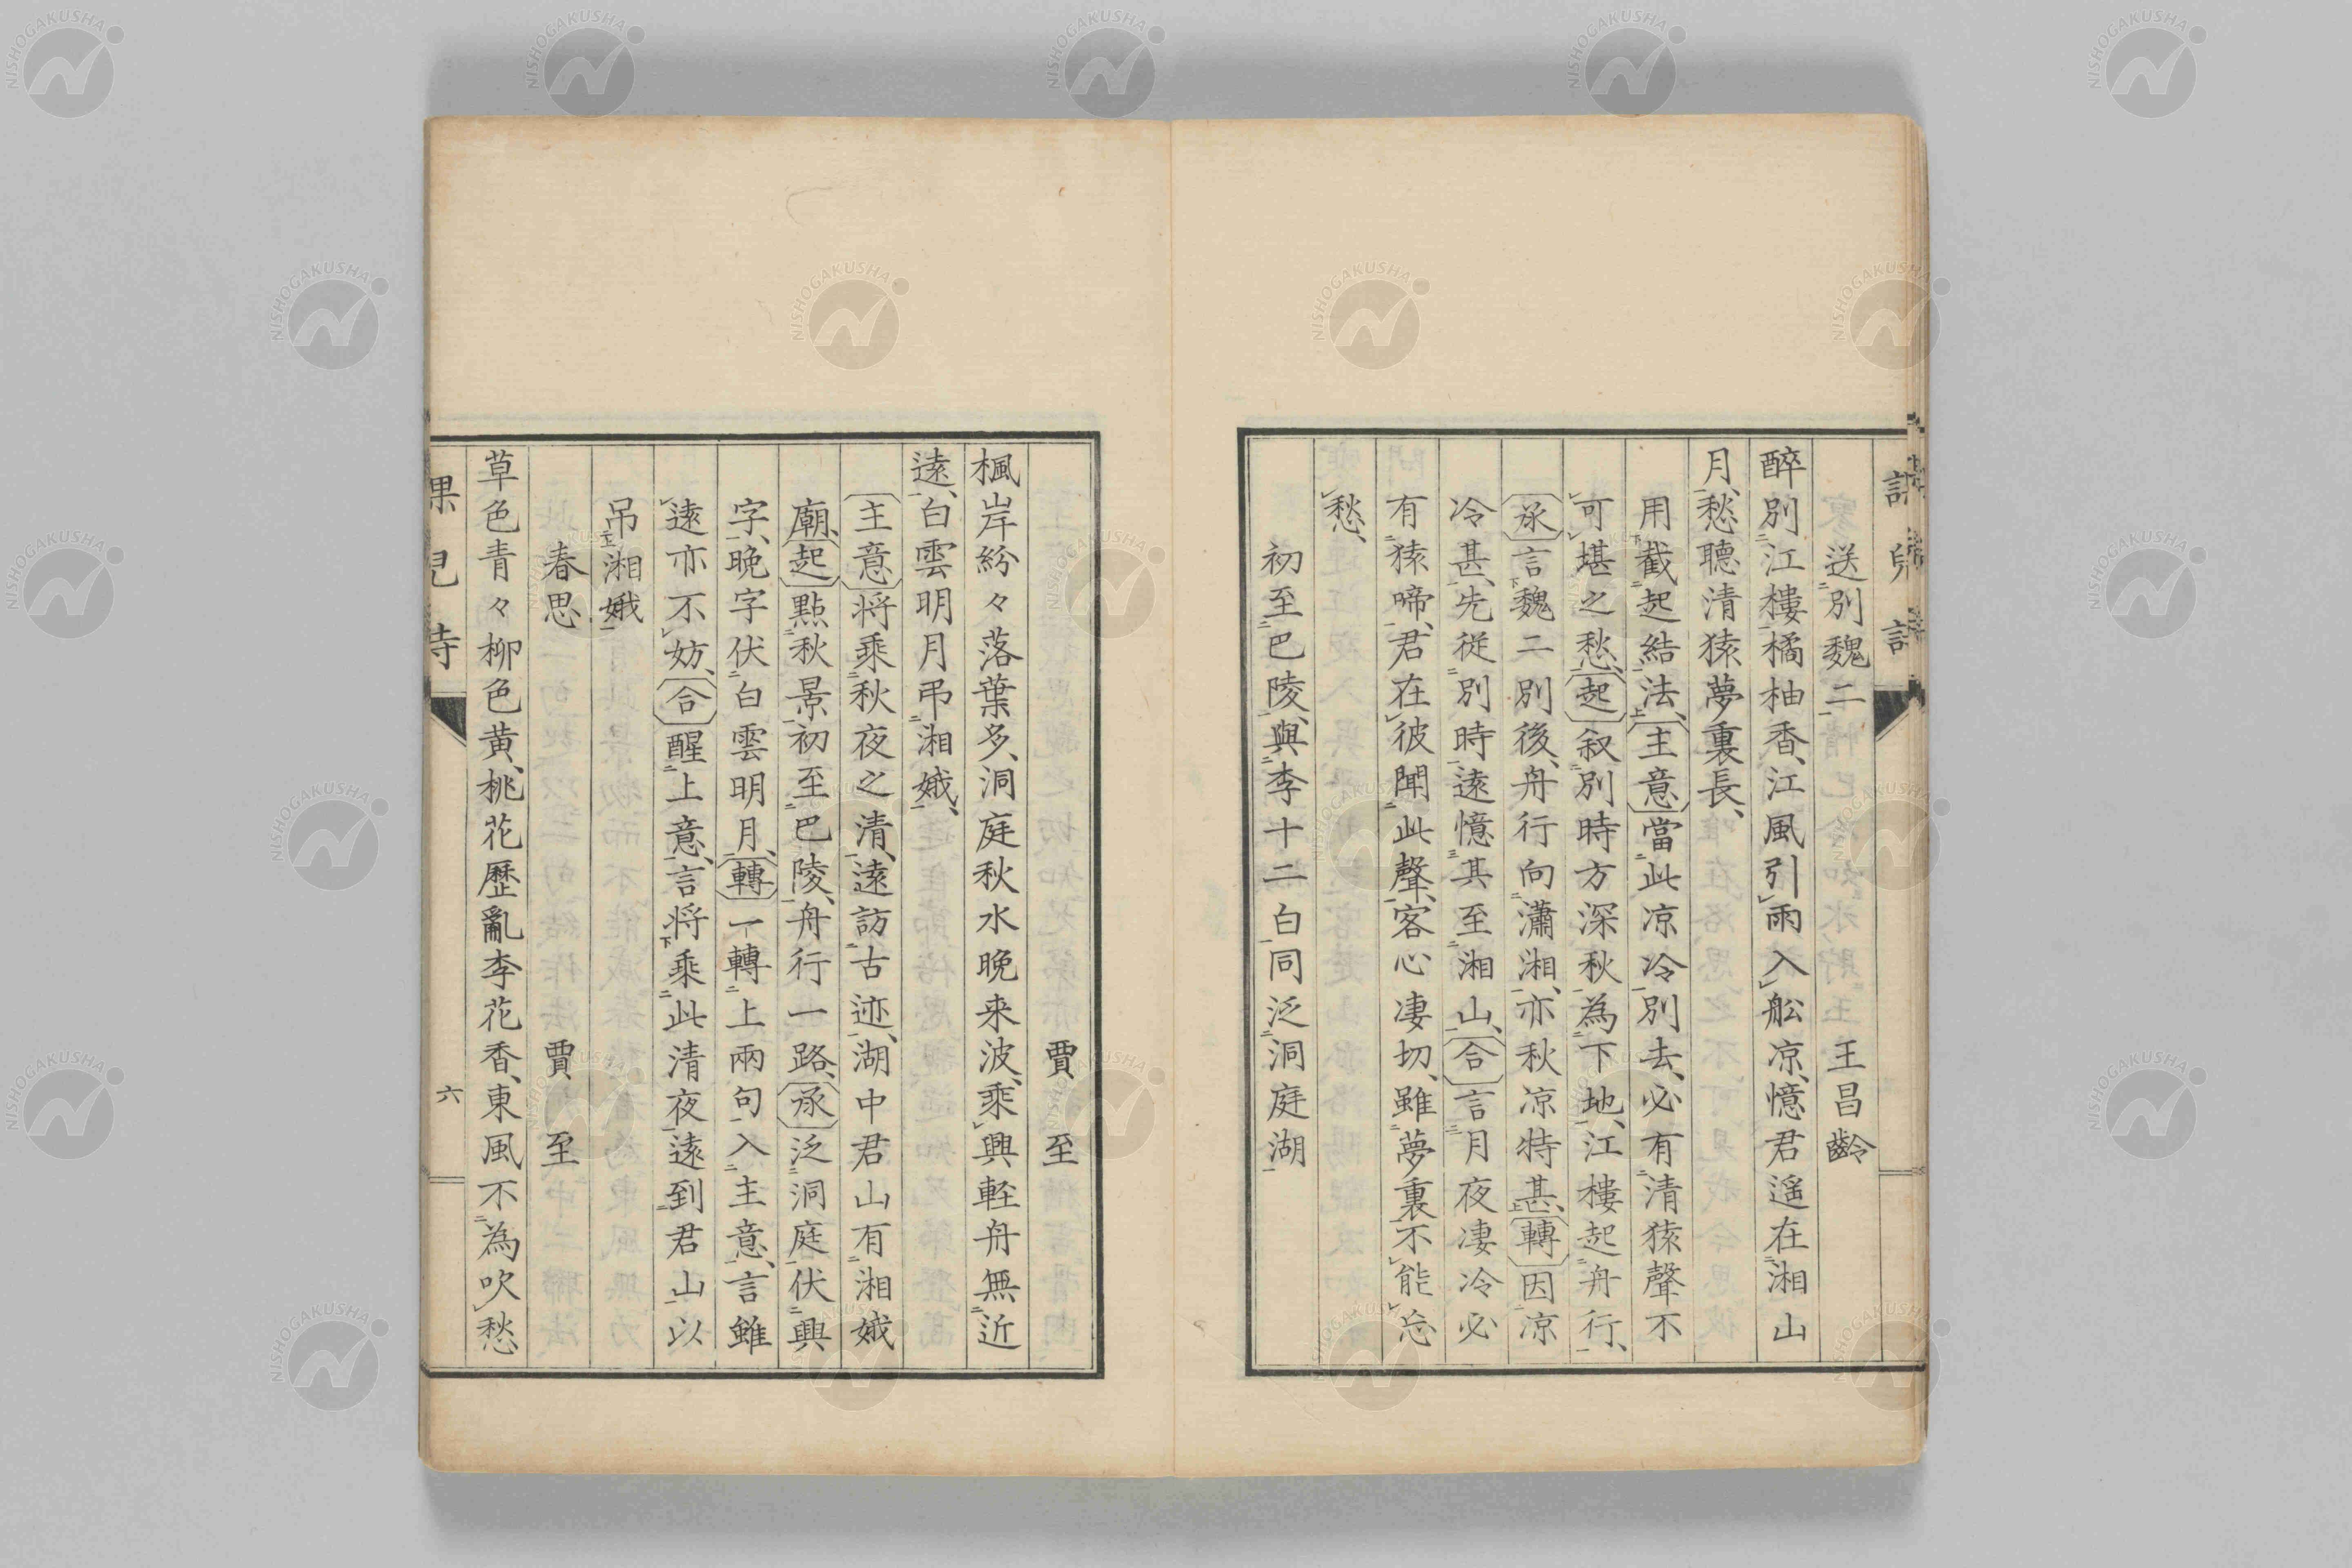 送別魏二　王昌齡
醉別江樓橘柚香、江風引雨入舩凉、憶君遥在湘山
月、愁聽清猿夢裏長、
用截起結法、主意當此凉冷別去、必有清猿聲不
可堪之愁、起叙別時方深秋為下地、江樓起舟行、
承言魏二別後、舟行向瀟湘、亦秋凉特甚、轉因凉
冷甚、先從別時遠憶其至湘山、合言月夜凄冷必
有猿啼、君在彼聞此聲、客心凄切、雖夢裏不能忘
愁、
初至巴陵、與李十二白同泛洞庭湖
賈至
楓岸紛々落葉多、洞庭秋水晚来波、乘興軽舟無近
遠、白雲明月弔湘娥、
主意将乘秋夜之清、遠訪古迹、湖中君山有湘娥
廟、起點秋景初至巴陵、舟行一路、承泛洞庭伏興
字、晚字伏白雲明月、轉一轉上兩句入主意、言雖
遠亦不妨、合醒上意、言将乘此清夜遠到君山以
吊湘娥
春思　賈至
草色青々柳色黄、桃花歷亂李花香、東風不為吹愁
六
NISHOGAKUSHA